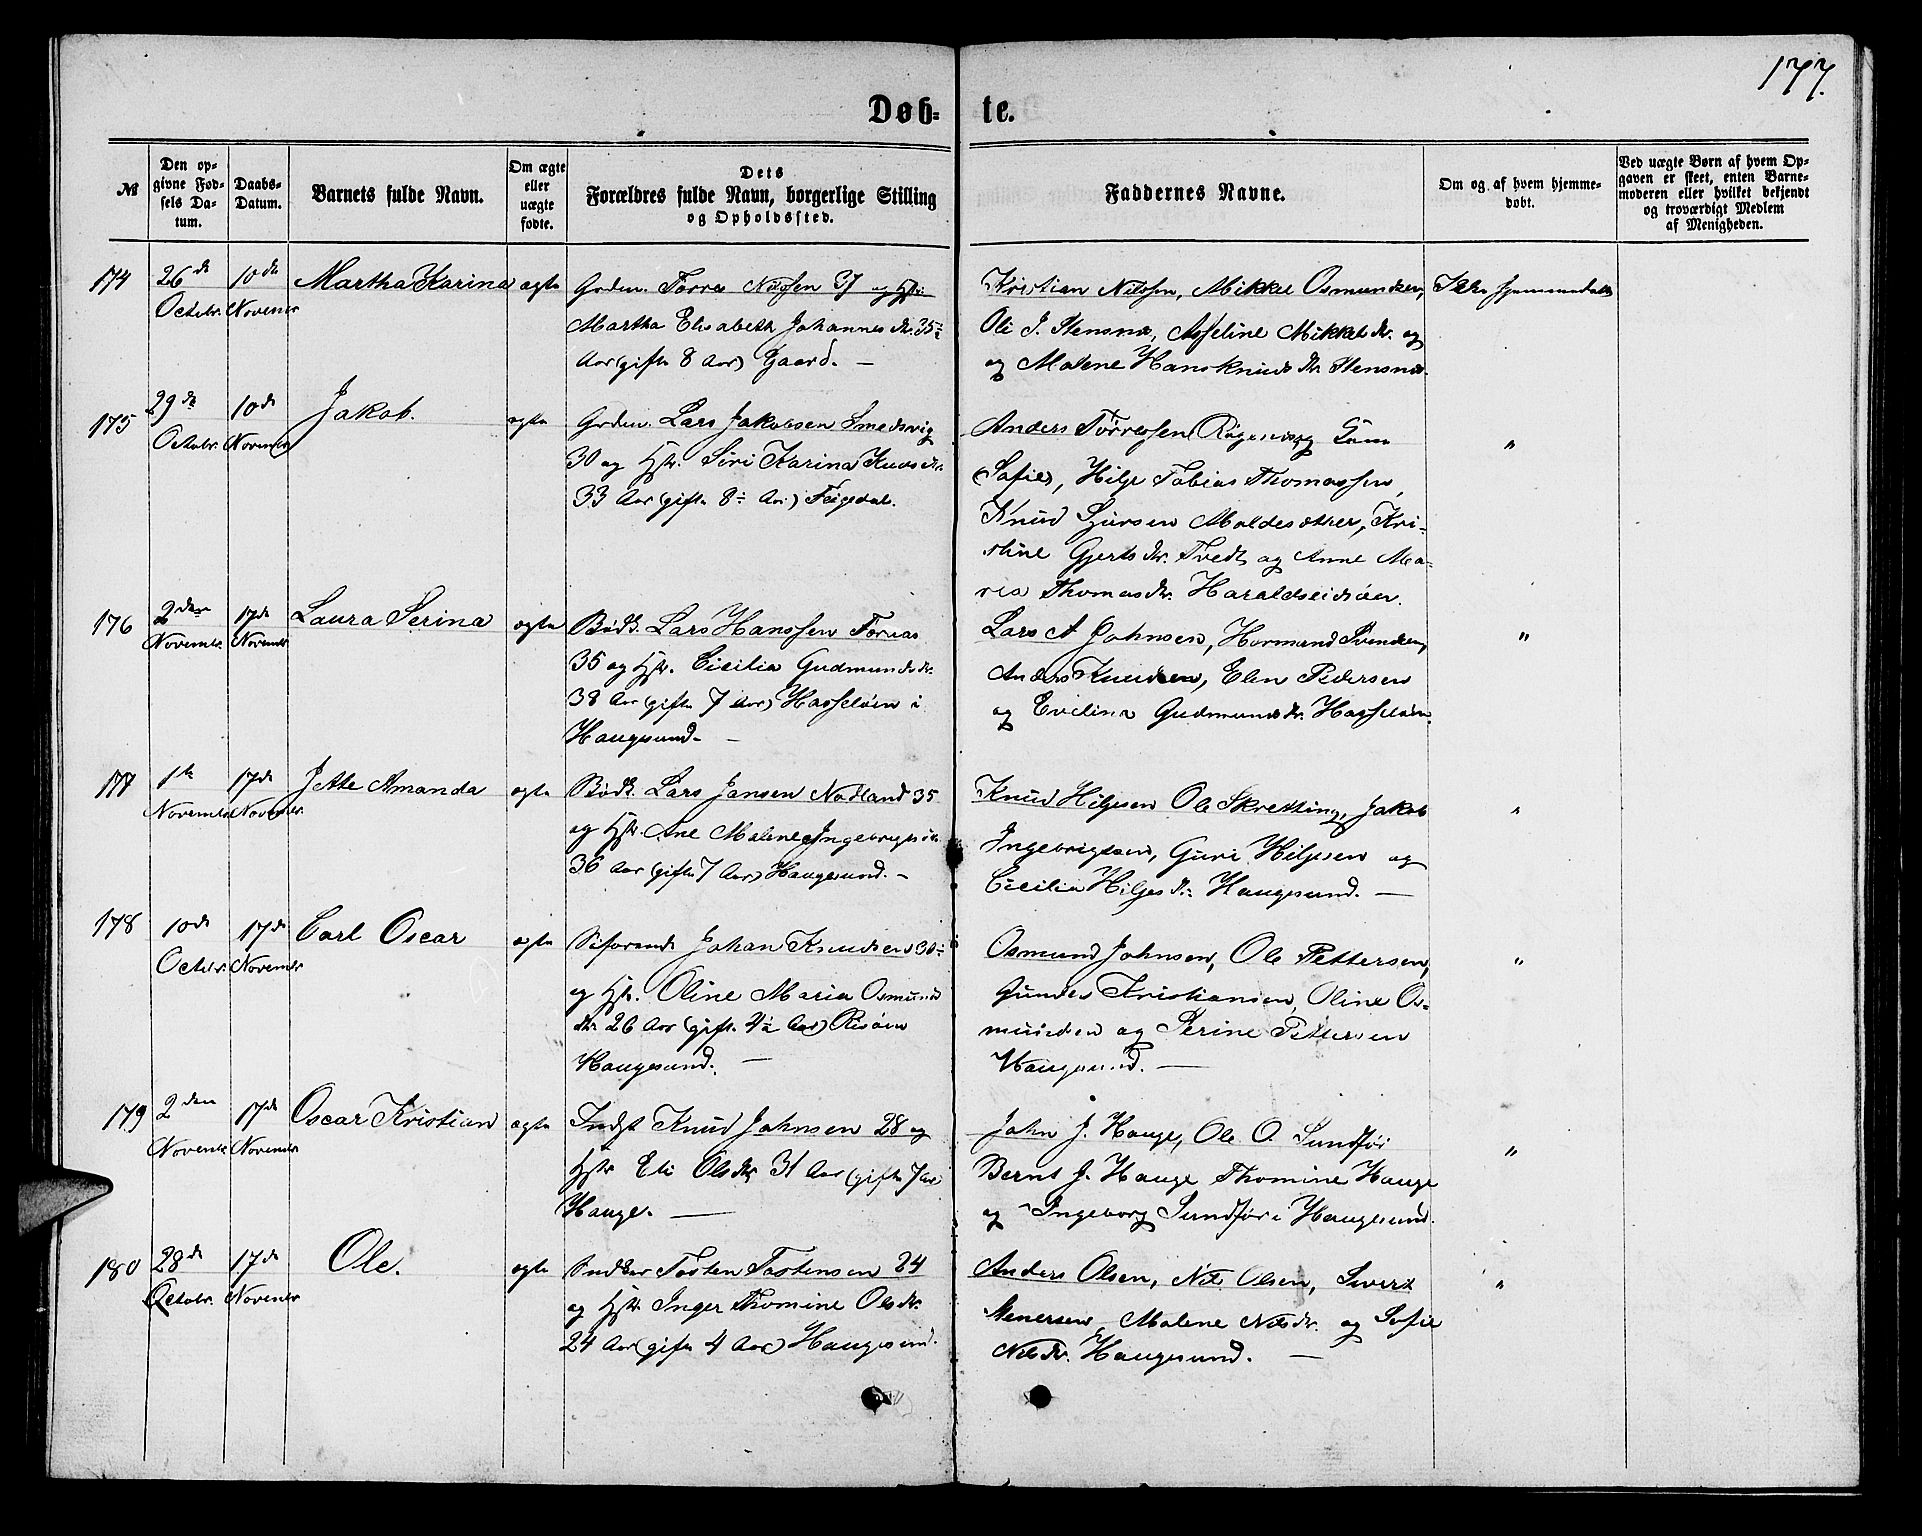 177.
Døb- te.
№
Den op-
givne Fød-
sels Da-
tum.
Daabs-
Datum.
Barnets fulde Navn.
Om ægte
eller
uægte
fødte.
Dets
Forældres fulde Navn, borgerlige Stilling
og Opholdssted.
Faddernes Navne.
Om og af hvem hjemme-
døbt.
Ved uægte Børn af hvem Op-
gaven er skeet, enten Barne-
moderen eller hvilket bekjendt
og troværdigt Medlem
af Menigheden.
174
26de
Octobr.
10de
Novembr
Martha Karina
ægte
Grdm. Torres Nilssen 37 og Hstr.
Martha Elisabeth Johannesdtr. 35
Aar (gifte 8 Aar) Gaard. —
Kristian Nilssen, Mikkel Osmundsen,
Ole J. Stensnes, Asseline Mikkelsdr. og
og Malene Hansknudsdr. Stensnes.
Ikke hjemmedøbt
175
29de
Octobr.
10de
Novembr
Jakob.
ægte
Grdm. Lars Jakobsen Smedsvig
30 og Hstr. Siri Karina Knudsdtr.
33 Aar (gifte 8 Aar) Feigedal.
Anders Tørressen og
Sofie, Hilje Tobias Thomassen,
Knud Sjursen Kri-
stine Gjertsdr. Tvedt og Anne Ma-
ria Thomasdr. Haraldseidsøen.
"
176
2den
Novembr.
17de
Novembr
Laura Serina
ægte
Bødk. Lars Hanssen Førnes
35 og Hstr. Cicilia Gudmundsdr.
38 Aar (gifte 7 Aar) Hasseløen i
Haugesund. —
Lars A Johnsen, Hormand Svendsen,
Anders Knudsen, Elen Pedersen
og Evelina Gudmundsdr. Hasseløen.
"
177
1ste
Novembr
17de
Novembr.
Jette Amanda
ægte
Bødk. Lars Jansen Nødland 35
og Hstr. Ane Malene Ingebrigtsdtr.
36 Aar (gifte 7 Aar) Haugesund. —
Knud Hiljesen Ole Skretting, Jakob
Ingebrigtsen, Guri Hiljesen og
Cicilia Hiljesdr. Haugesund. —
"
178
10de
Octobr.
17de
Novembr.
Carl Oscar
ægte
Søfarende Johan Knudsen 30
og Hstr. Oline Maria Osmunds
dtr. 26 Aar (gift. 4½ Aar) Risøen
Haugesund. —
Osmund Johnsen, Ole Pettersen,
Gunder Kristiansen, Oline Os-
mundsen og Serine Pettersen
Haugesund. —
"
179
2den
Novembr
17de
Novembr.
Oscar Kristian
ægte
Indst Knud Johnsen 28 og
Hstr Eli Olsdtr. 31 Aar (gifte 7 Aar)
Hauge. —
John J. Hauge, Ole O. Sundfør
Bernt J. Hauge Thomine Hauge
og Ingeborg Sundfør i Haugesund.
"
180
28de
Octobr.
17de
Novembr
Ole.
ægte
Tosten Tostensen 24
og Hstr. Inger Thomine Olsdtr.
24 Aar (gifte 4 Aar) Haugesund.
Anders Olsen, Nils Olsen, Sivert
Stenersen, Malene Nilsdr. og Sofie
Nilsdr. Haugesund. —
"